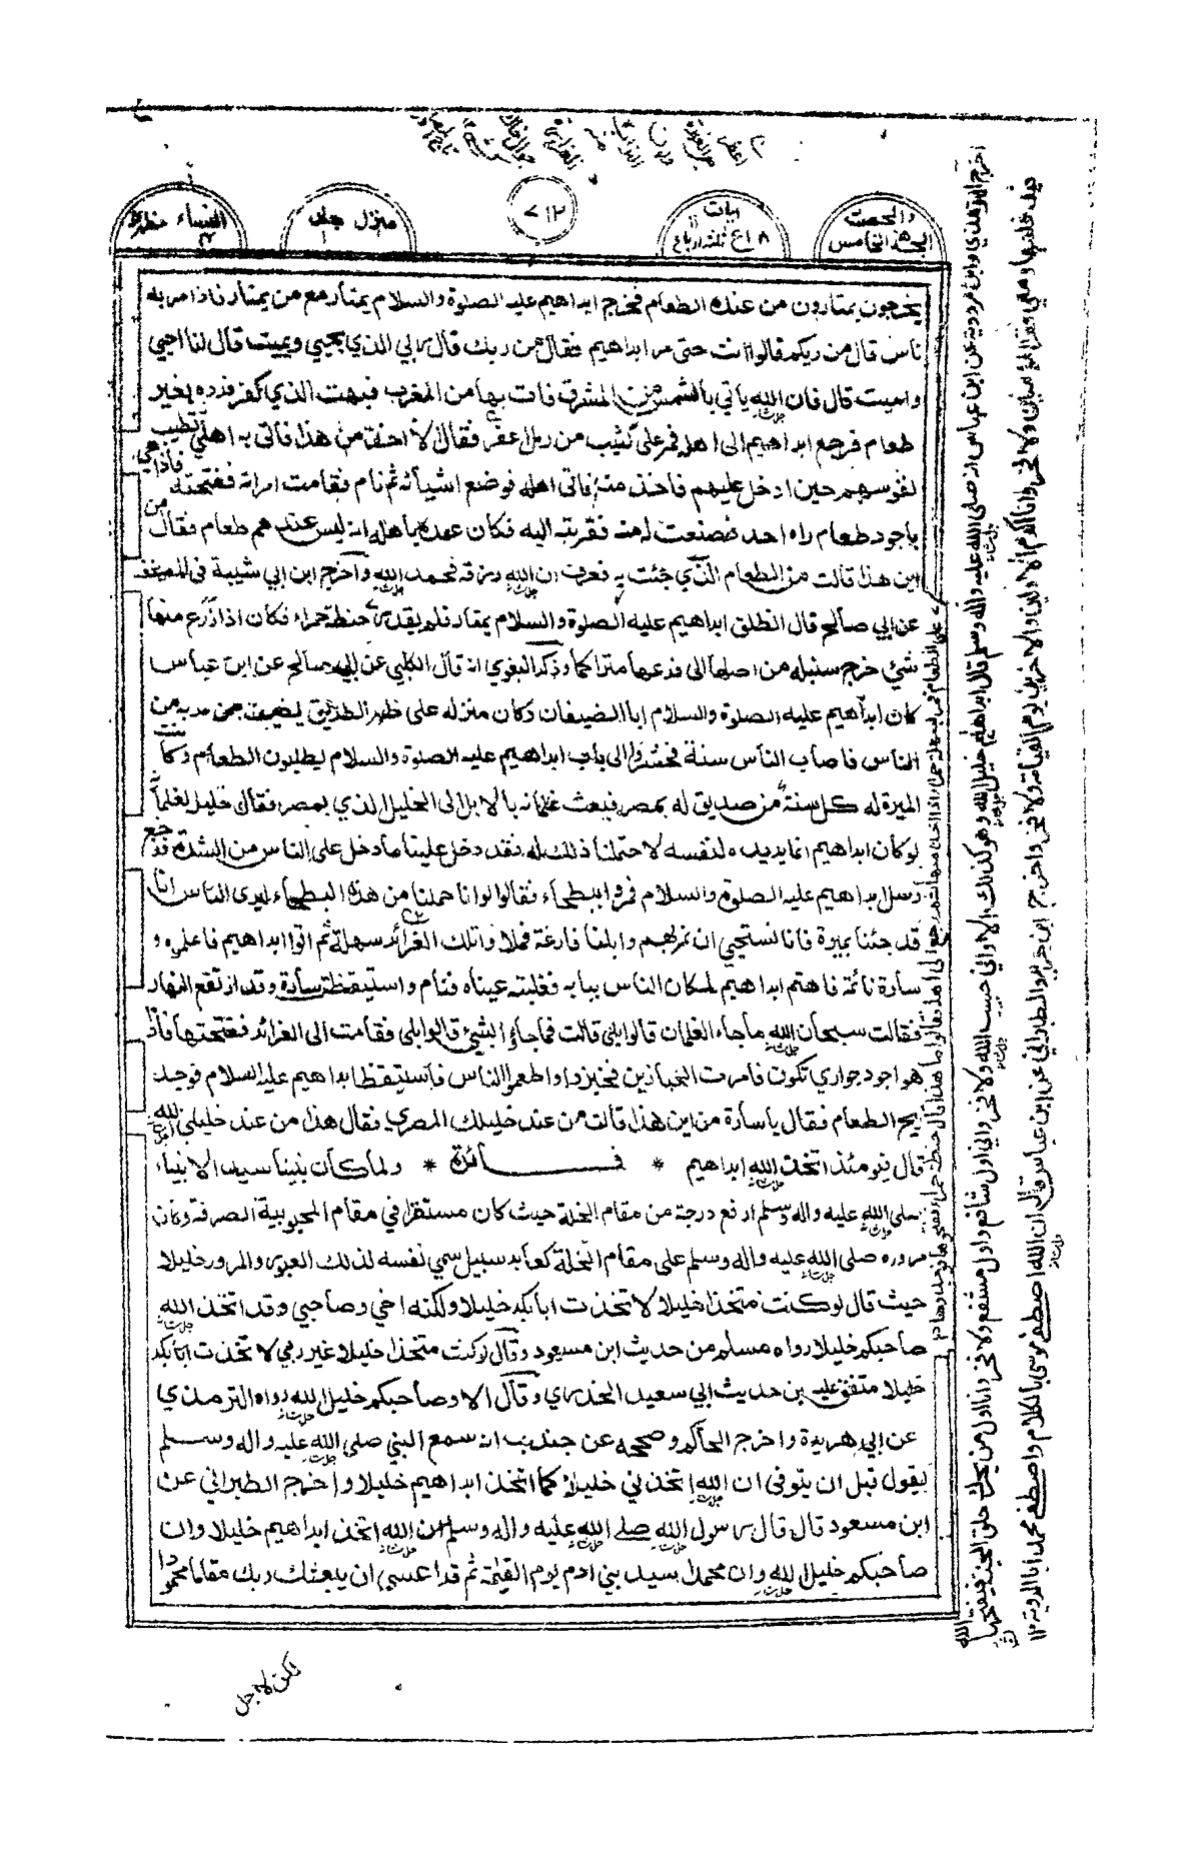 والمحصنت
الجزء الخامس
ايات
ثلثة ارباع
٧١٢
منزل جلد
النساء مظهري
يخرجون يمتارون من عنده الطعام فخرج ابراهيم عليه الصلوة والسلام يمتار مع من يمتار فاذا مر به
ناس قال من ربكم قالوا انت حتى مر ابراهيم فقال من ربك قال ربي الذي يحيي ويميت قال انا احيي
واميت قال فان الله ياتي بالشمس من المشرق فات بها من المغرب فبهت الذي كفر فرده بغير
طعام فرجع ابراهيم الى اهله فمر على كثيب من رمل عفر فقال لا اخذ من هذا فاتى به اهلي تطيب
نفوسهم حين ادخل عليهم فاخذ منه فاتى اهله فوضع اشيائه ثم نام فقامت امراته ففتحته فاذا هي
باجود طعام راه احد فصنعت له منه فقربته اليه فكان عهده باهله انه ليس عندهم طعام فقال من
اين هذا قالت من الطعام الذي جئت به فعرف ان الله رزقه فحمد الله واخرج ابن ابي شيبة في المصنف
عن ابي صالح قال انطلق ابراهيم عليه الصلوة والسلام يمتار فلم يقدر حنطة حمراء فكان اذا زرع منها
شئ خرج سنبله من اصلها الى فرعها متراكما وذكر البغوي انه قال الكلبي عن ابي صالح عن ابن عباس
كان ابراهيم عليه الصلوة والسلام ابا الضيفان وكان منزله على ظهر الطريق يضيف من مر به من
الناس فاصاب الناس سنة فحشروا الى باب ابراهيم عليه الصلوة والسلام يطلبون الطعام وكانت
الميرة له كل سنة من صديق له بمصر فبعث غلمانه بالابل الى الخليل الذي بمصر فقال خليل لغلمانه
لو كان ابراهيم انما يريده لنفسه لاحتملنا ذلك له فقد دخل علينا ما دخل على الناس من الشدة فرجع
رسل ابراهيم عليه الصلوة والسلام فمروا ببطحاء فقالوا لو انا حملنا من هذه البطحاء ليرى الناس انا
قد جئنا بميرة فانا نستحيي ان نمر بهم وابلنا فارغة فملاوا تلك الغرائر سهلة ثم اتوا ابراهيم فاعلموه و
سارة نائمة فاهتم ابراهيم لمكان الناس ببابه فغلبته عيناه فنام واستيقظت سارة وقد ارتفع النهار
فقالت سبحان الله ما جاء الغلمان قالوا بلى قالت فما جاؤا بشئ قالوا بلى فقامت الى الغرائر ففتحتها فاذا
هو اجود حواري تكون فامرت الخبازين فخبزوا واطعموا الناس فاستيقظ ابراهيم عليه السلام فوجد
ريح الطعام فقال يا سارة من اين هذا قالت من عند خليلك المصري فقال هذا من عند خليلي الله
قال فيومئذ اتخذ الله ابراهيم * فــــائدة * ولما كان نبينا سيد الانبياء
صلى الله عليه واله وسلم ارفع درجة من مقام الخلة حيث كان مستقرا في مقام المحبوبية الصرفة وكان
مروره صلى الله عليه واله وسلم على مقام الخلة كعابر سبيل سمي نفسه لذلك العبور والمرور خليلا
حيث قال لو كنت متخذا خليلا لاتخذت ابا بكر خليلا ولكنه اخي وصاحبي وقد اتخذ الله
صاحبكم خليلا رواه مسلم من حديث ابن مسعود وقال لو كنت متخذا خليلا غير ربي لاتخذت ابا بكر
خليلا متفق عليه من حديث ابي سعيد الخدري وقال الا وصاحبكم خليل الله رواه الترمذي
عن ابي هريرة واخرج الحاكم وصححه عن جندب انه سمع النبي صلى الله عليه واله وسلم
يقول قبل ان يتوفى ان الله اتخذني خليلا كما اتخذ ابراهيم خليلا واخرج الطبراني عن
ابن مسعود قال قال رسول الله صلى الله عليه واله وسلم ان الله اتخذ ابراهيم خليلا وان
صاحبكم خليل الله وان محمدا سيد بني ادم يوم القيمة ثم قرا عسى ان يبعثك ربك مقاما محمودا
اخرج الترمذي وابن مردوية عن ابن عباس انه صلى الله عليه واله وسلم قال ابراهيم خليل الله وهو كذلك الا واني حبيب الله ولا فخر واني اول شافع واول مشفع ولا فخر وانا اول من يحرك حلق الجنة فيفتحها الله
فيدخلنيها ومعي فقراء المؤمنين ولا فخر وانا اكرم الاولين والاخرين يوم القيامة ولا فخر واخرج ابن جرير والطبراني عن ابن عباس قال ان الله اصطفى موسى بالكلام واصطفى محمدا بالروية ١٢
لكن لاجل